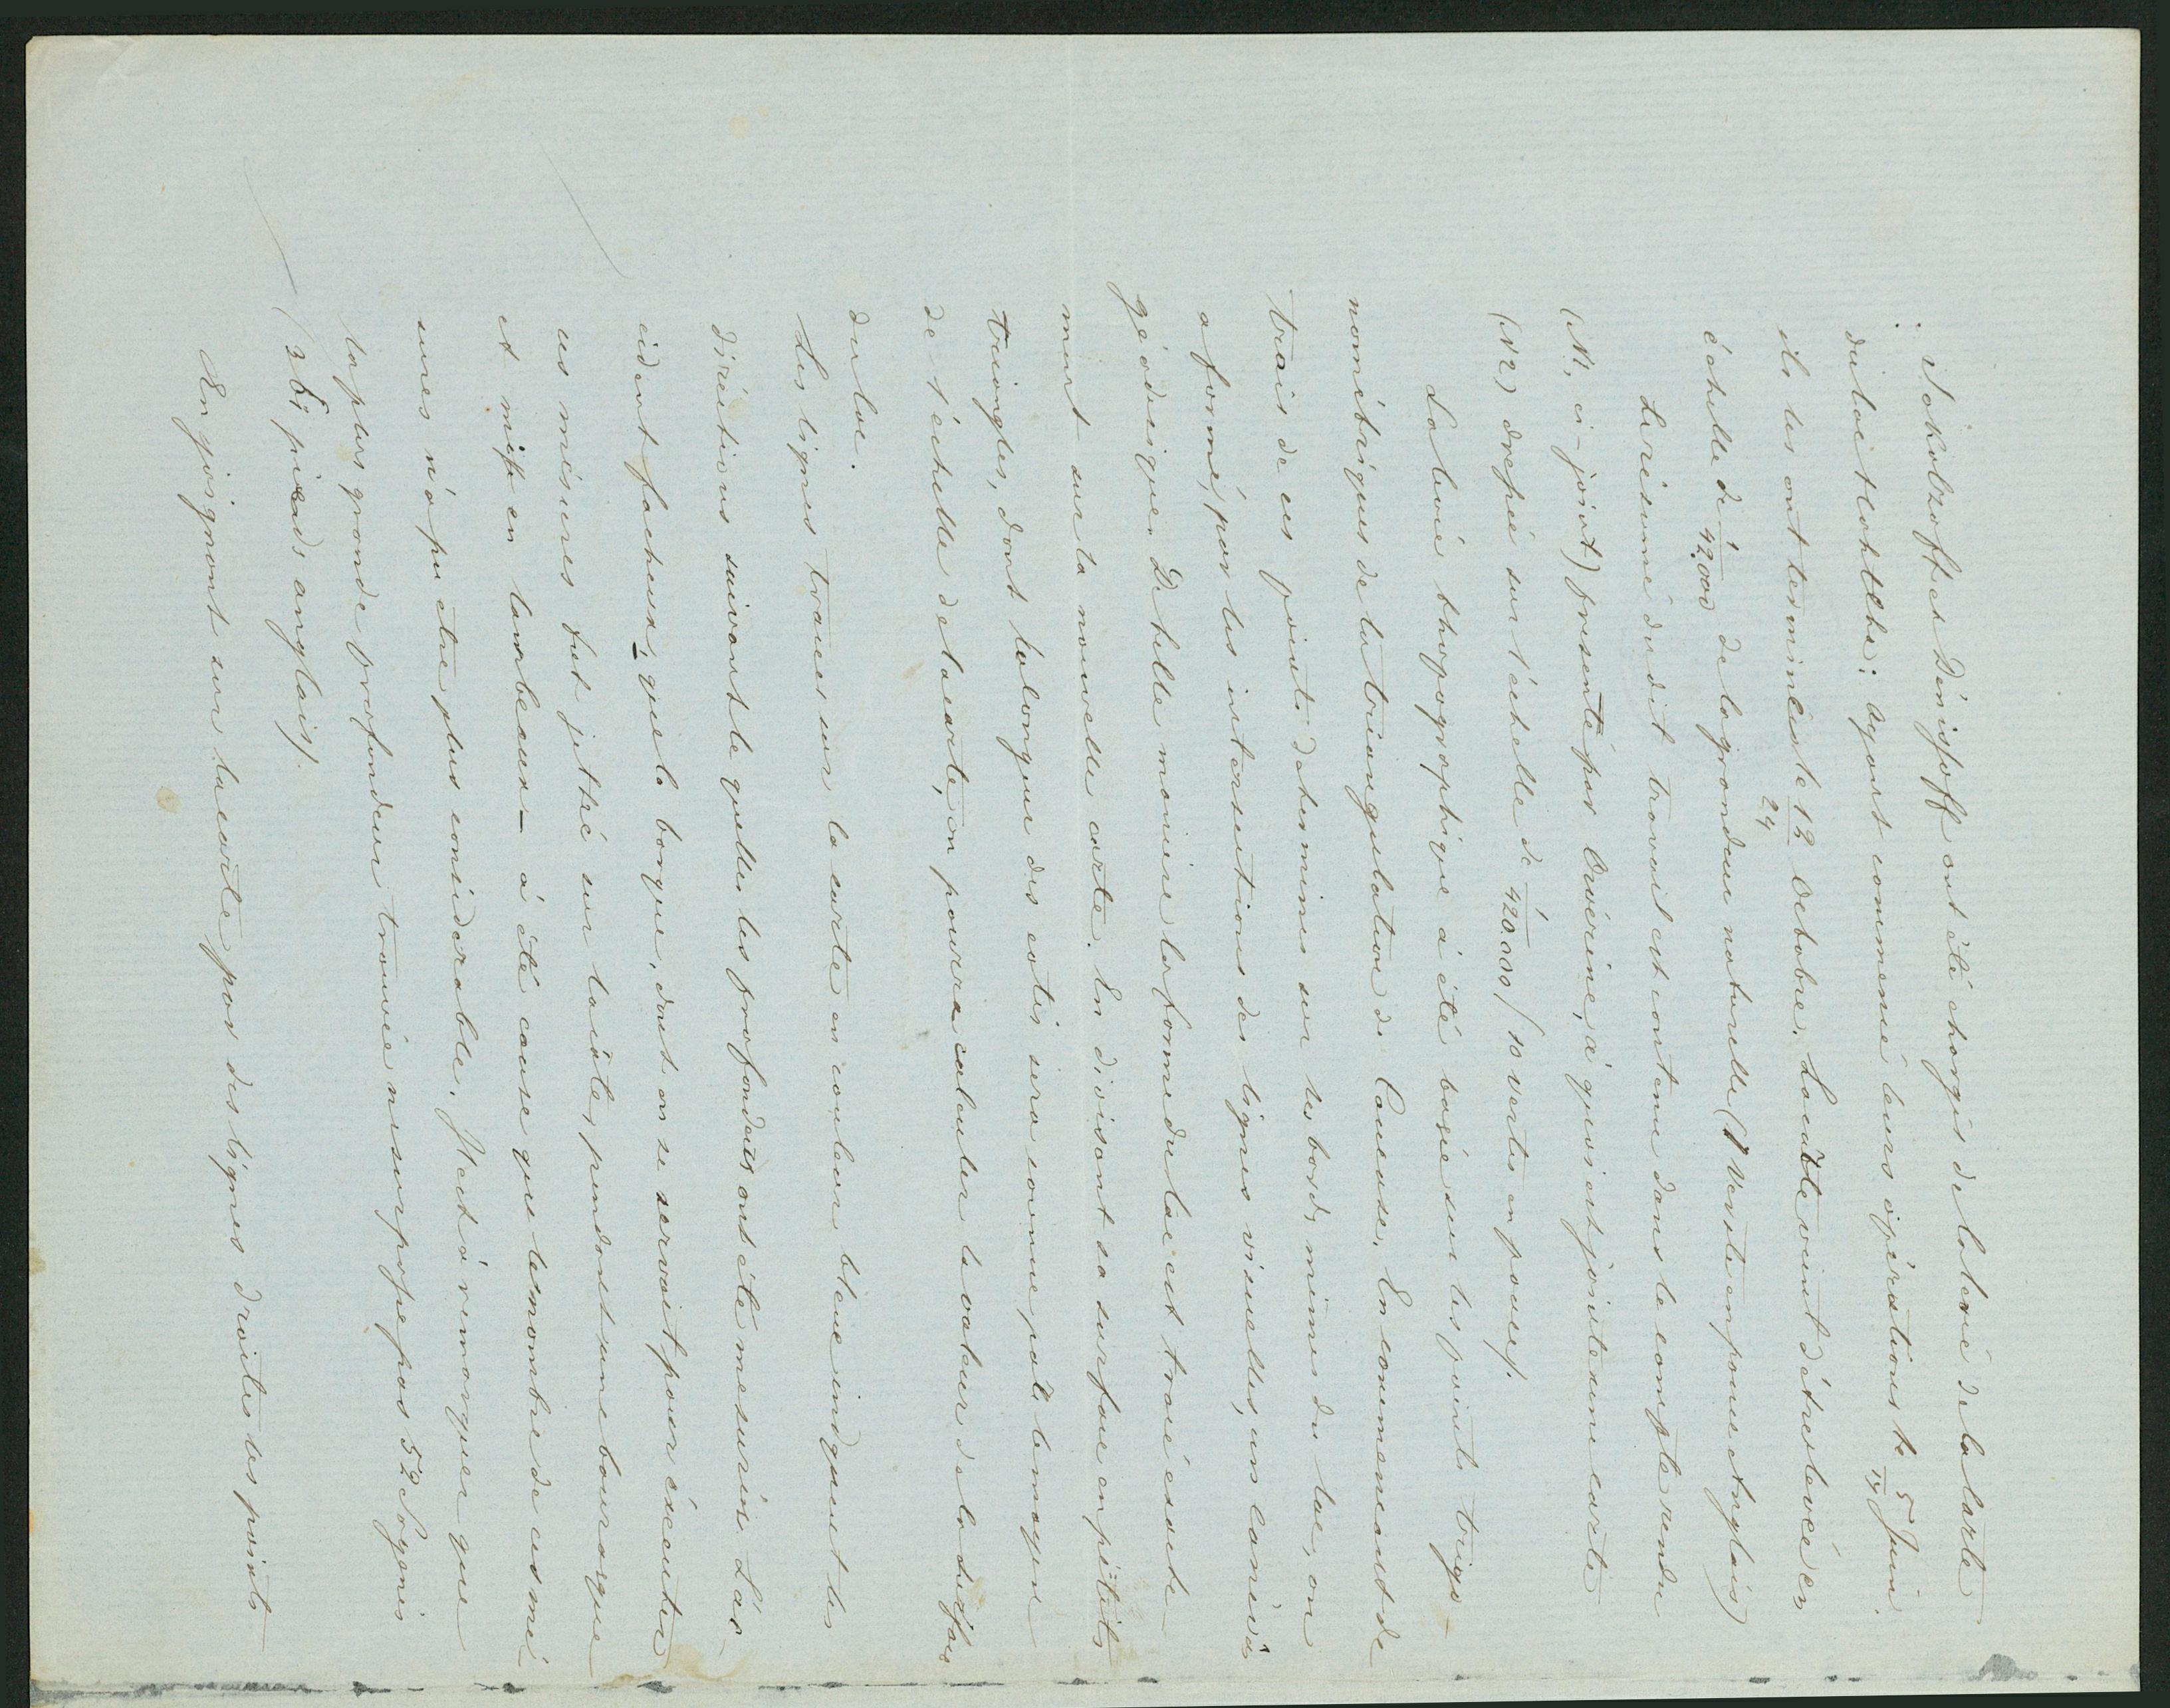 Sokolzoff et Dénisoff ont été chargés de la levée de la carte
du lac et Gokttcha; ayant commencé leurs opérations le 5/17 Juin.
ils les ont terminées le 12/24 Octobre. La carte vient d'étre levée en
échelle de 1/42.000 de la grondeur naturelle (1 Verste en pouce Anglais)
Le résumé du dit travail est contenu dans le compte rendu
(N1, ci-joint) présenté par Owérine, à quoi est jointe une carte
(N2) dressée sur l'échelle de 1/420.000 (10 verstes en pouce).
La levée thopographique à été basée sur les points trigo-
nométriques de la triangulation du Caucase. En commencent de
trois de ces points determinés sur les bords mêmes du lac, on
a formé, par les intersections des lignes visuelles, un canévas
géodesique. De telle manière la forme du lac est tracé exacte-
ment sur la nouvelle carte. En divisant sa surface en pétits
triongles, dont la longueur des cotés sera connue par le moyen
de l'échelle de la carte, on pourra calculer la valeur de la surface
du lac.
Les lignes tracés sur la carte en couleur bleue indiquent les
diréctions suivant le quelles les profondeurs ont été mesurés. L'ac-
cident facheux, que la barque, dont on se servait pour éxecuter
ces mésures fut jetté sur la côte, pendant une bourasque
et mise en lambeaux – à été cause que le nombre de ces mé-
sures n'a pu être plus considerable. Il est à remarquer que
la plus grande profondeur trouvée ne surpasse pas 52 Sagènes
(361 pieds anglais).
En joignant sur la carte par des lignes droites les points